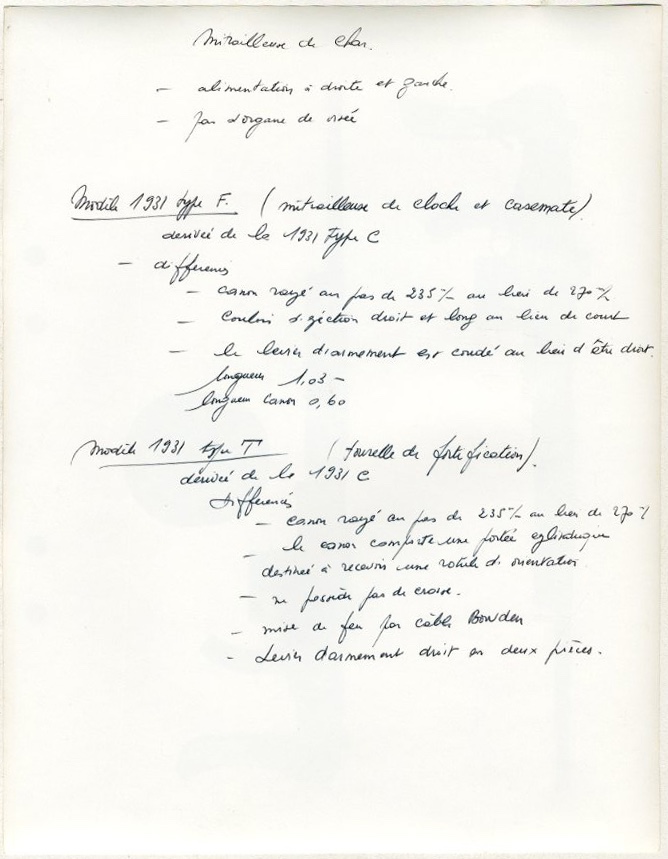 Mitrailleuse de char.
– alimentation à droite et gauche.
– pas d'organe de visée
Modèle 1931 type F. (mitrailleuse de cloche et casemate)
dérivée de la 1931 Type C
– différences
– canon rayé au pas de 235 m/m au lieu de 270 m/m
– Couloir d'éjection droit et long au lieu de court
– le levier d'armement est coudé au lieu d'être droit.
longueur 1,03 –
longueur canon 0,60
Modèle 1931 type T (tourelle de fortification).
dérivée de la 1931 C
différences
– canon rayé au pas de 235 m/m au lieu de 270 m/m
– le canon comporte une portée cylindrique
destinée à recevoir une rotule d'orientation.
– ne possède pas de crosse.
– mise de feu par câble Bowden
– Levier d'armement droit en deux pièces.